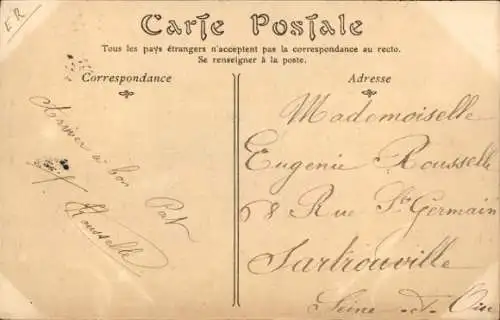 ER
Carte Postale
Tous les pays étrangers n'acceptent pas la correspondance au recto.
Se renseigner à la poste.
Correspondance
Adresse
Arriver à bon
Rousselle
Mademoiselle
Eugenie Rousselle
8 Rue St Germain
Sartrouville
Seine-et-Oise